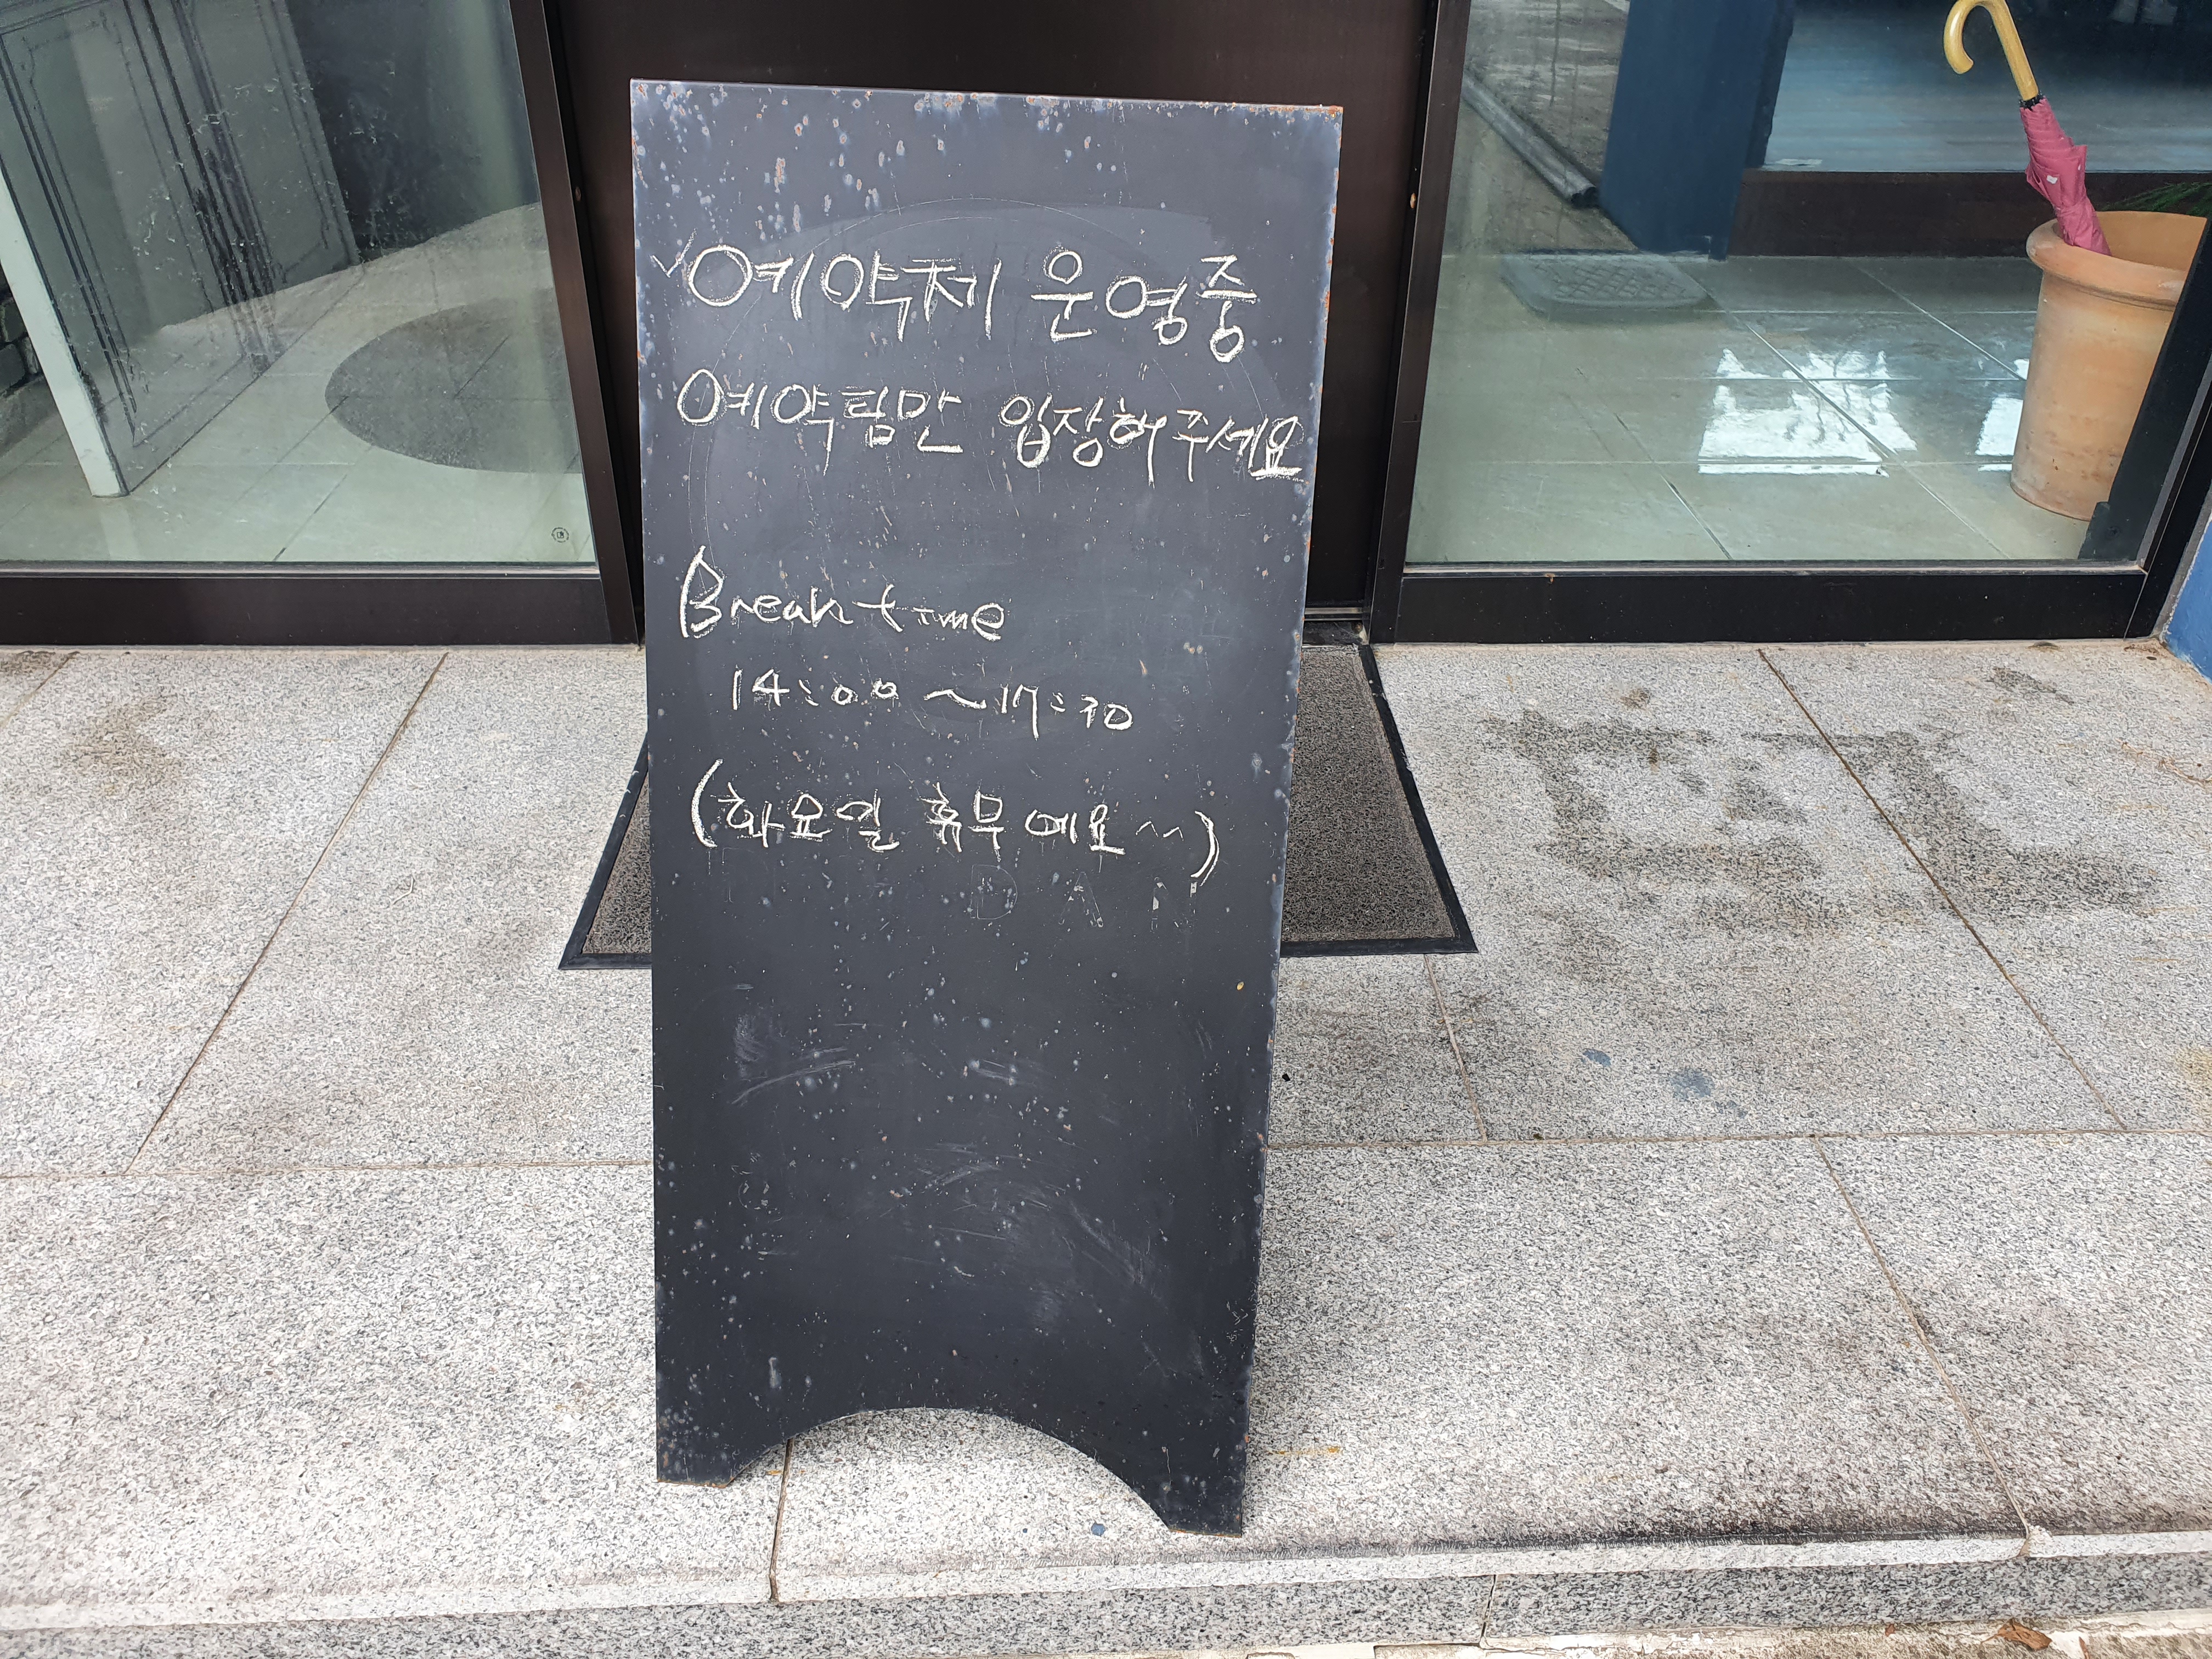 ✓예약제 운영중
예약팀만 입장해주세요
Break time
14:00 ~ 17:30
(화요일 휴무예요^^)
DAN